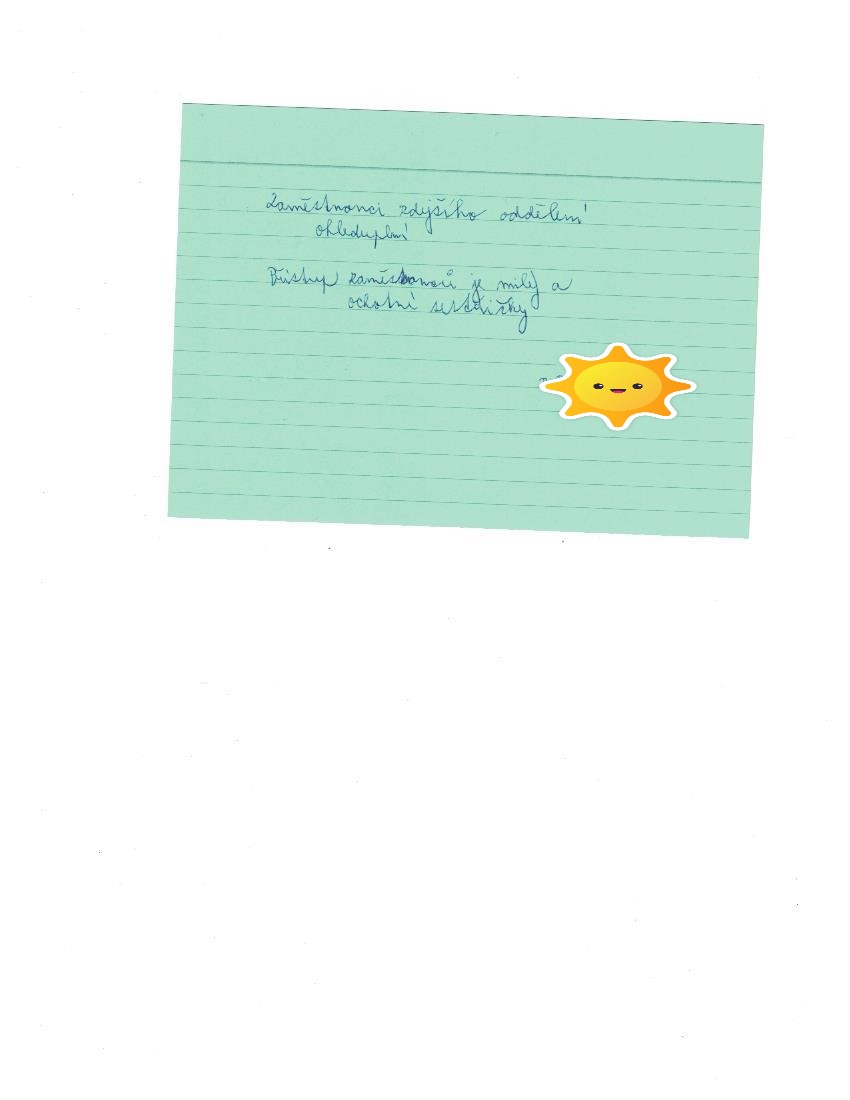 Zaměstnanci zdejšího oddělení
ohleduplní
Přístup zaměstnanců je milý a
ochotní sestřičky